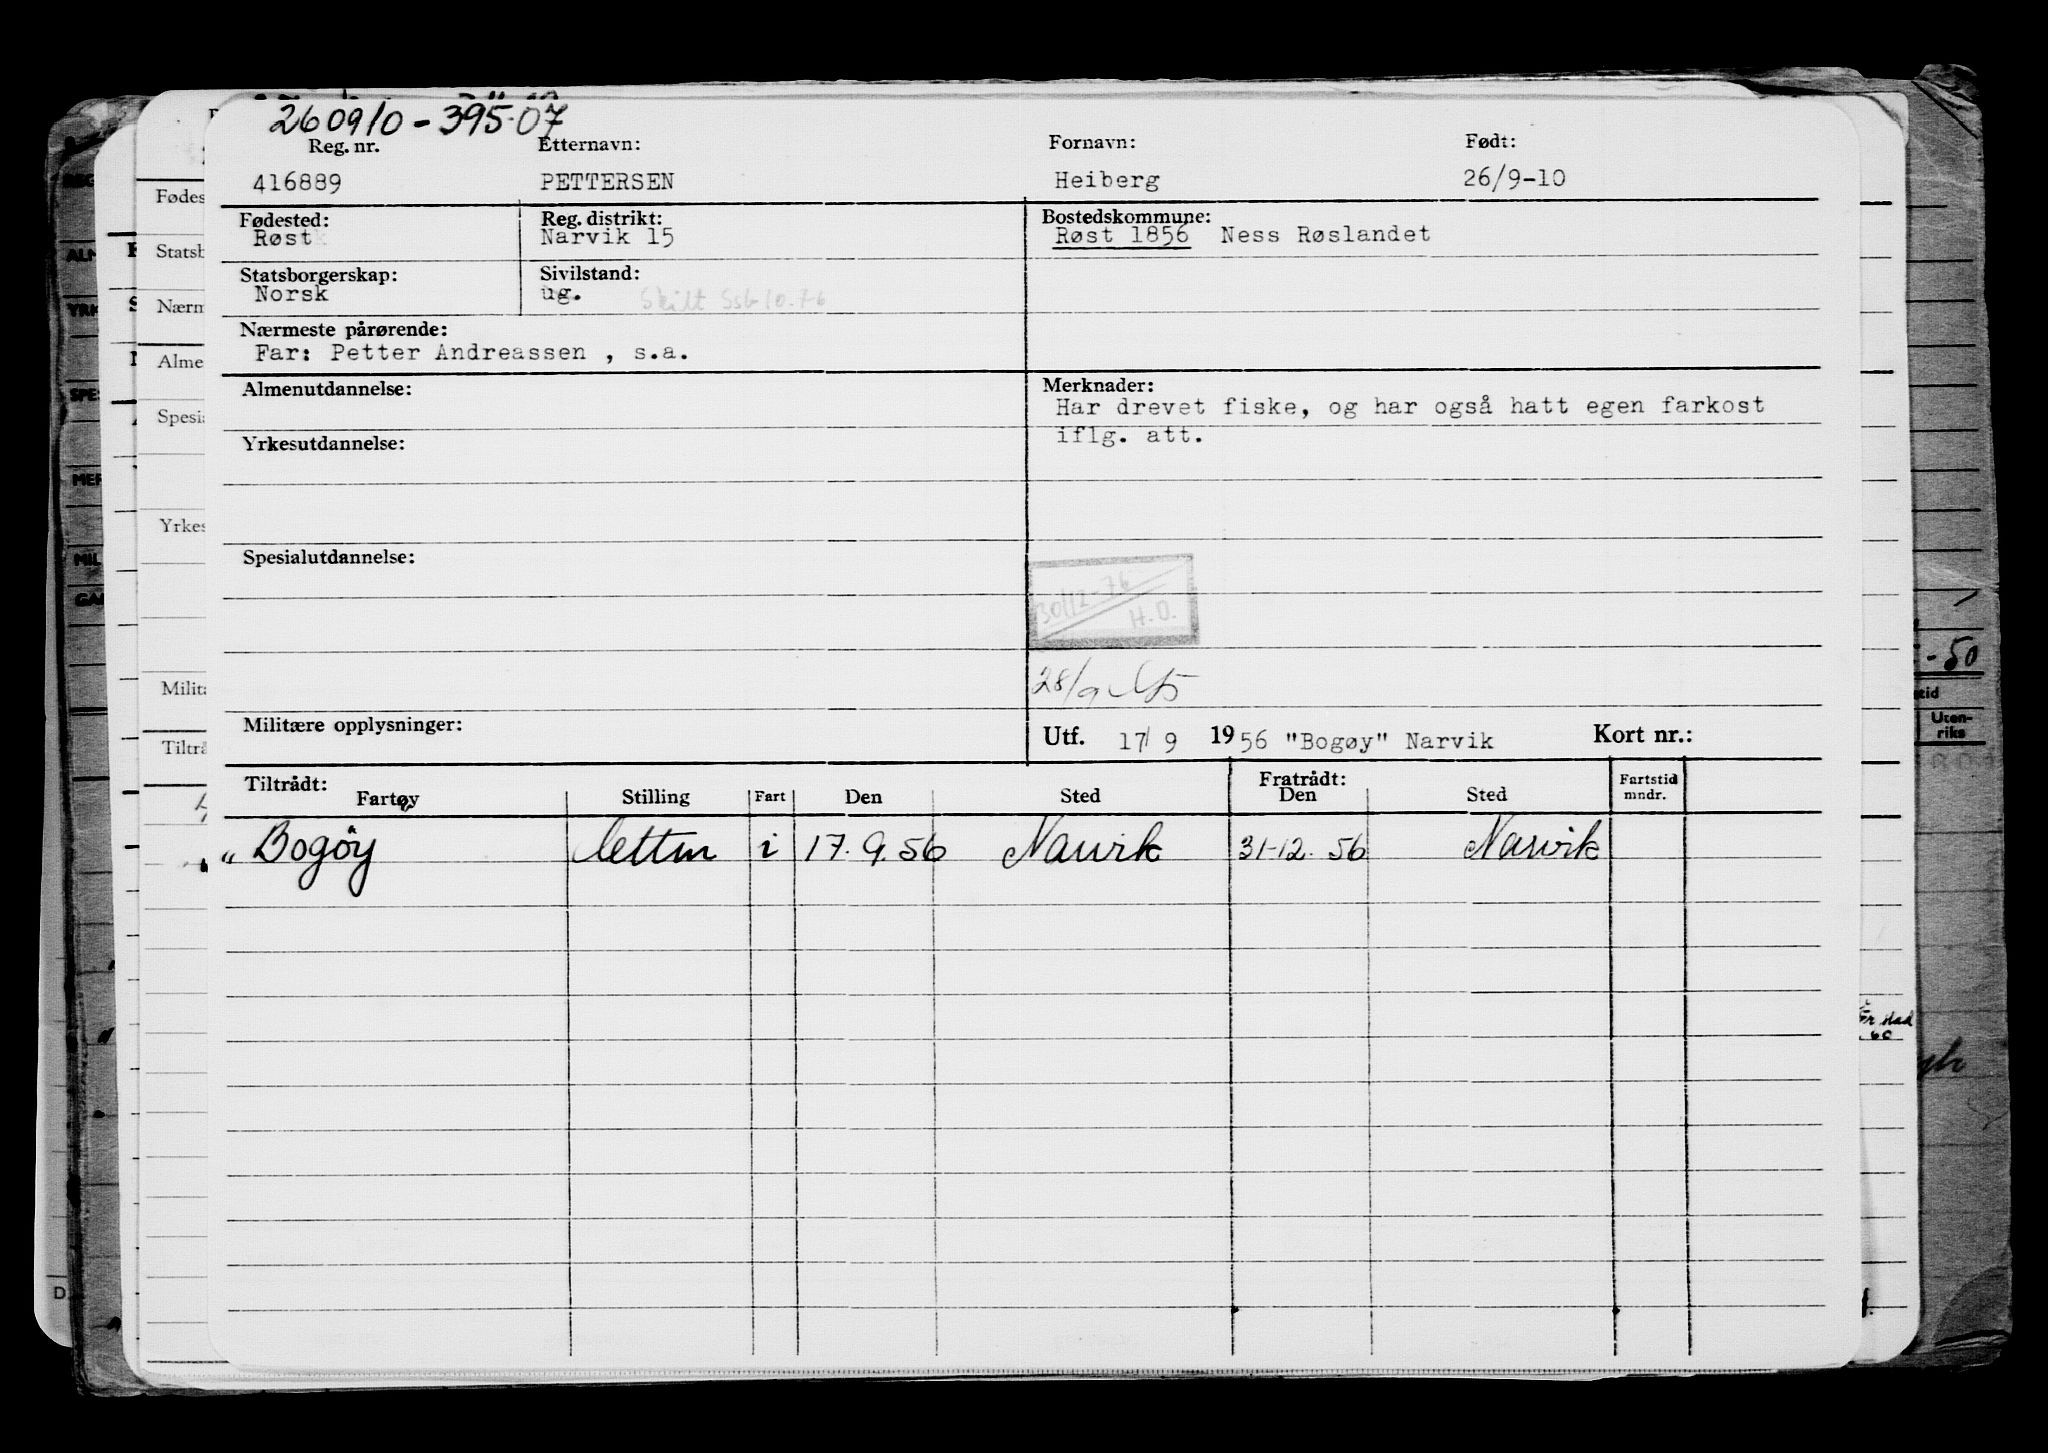 260910-395-07
Reg. nr. Etternavn: Fornavn: Født:
416889 PETTERSEN Heiberg 26/9-10
Fødested: Reg. distrikt: Bostedskommune:
Røst Narvik 15 Røst 1856 Ness Røslandet
Statsborgerskap: Sivilstand:
Norsk ug. Skilt Ssb 10.76
Nærmeste pårørende:
Far: Petter Andreassen , s.a.
Almenutdannelse: Merknader:
Har drevet fiske, og har også hatt egen farkost
iflg. att.
Yrkesutdannelse:
Spesialutdannelse:
30/12-76
H.O.
28/9
Militære opplysninger: Utf. 17/9 1956 "Bogøy" Narvik Kort nr.:
Tiltrådt: Fratrådt:
Fartøy Stilling Fart Den Sted Den Sted Fartstid mndr.
"Bogøy" lettm i 17.9.56 Narvik 31-12.56 Narvik
Fødes
Statsb
Nærm
Alme
Spesia
Yrkes
Milita
Tiltrå
ALM
YRK
SPES
MER
MIL
-50
tid
Uten-
riks